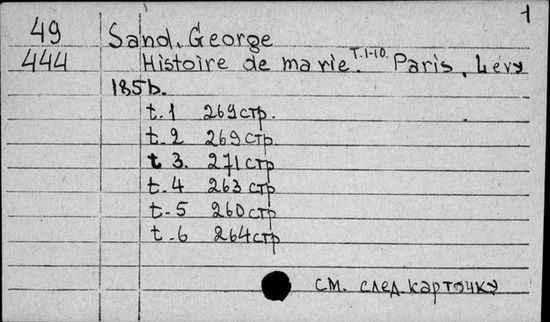 1
49 Sand, George
444 Histoire de ma vie. T.1-10. Paris, Levy
1856.
t.1 269 стр.
t.2 269 стр.
t 3. 271 стр
t.4 263 стр
t.5 260 стр
t.6 264 стр
см. след карточку